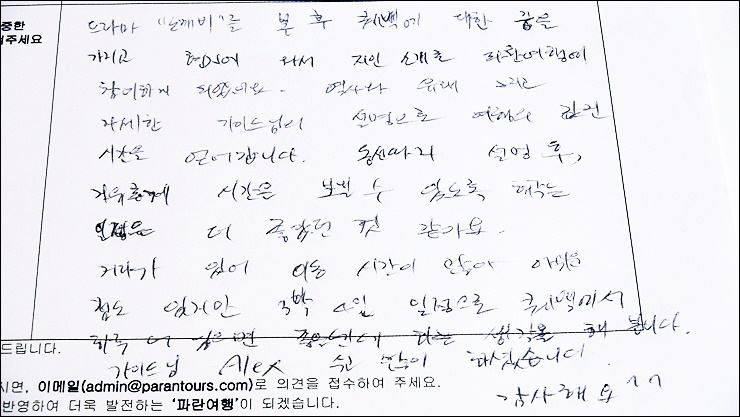 중한
주세요
드라마 "도깨비"를 본 후 퀘백에 대한 꿈을
가지고 와서 지인 소개로 파란여행에
참여하게 되었네요. 역사와 유래 그리고
자세한 가이드님의 설명으로 여행의 값진
시간을 얻어갑니다. 동선따라 설명 후,
시간을 보낼 수 있도록 해주는
일정은 더 좋았던 것 같아요.
거리가 있어 이동 시간이 많아 아쉬운
점도 있지만 3박 4일 일정으로 퀘백에서
하루 더 있으면 좋을텐데 하는 생각을 해 봅니다.
드립니다.
가이드님 Alex 수고 많이 하셨습니다.
시면, 이메일(admin@parantours.com)로 의견을 접수하여 주세요.
감사해요^^
반영하여 더욱 발전하는 '파란여행'이 되겠습니다.